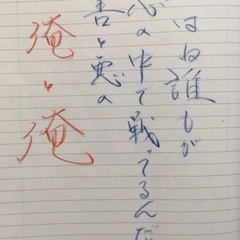 はね誰もが
心の中で戦ってるんだ
善と悪の
俺と俺